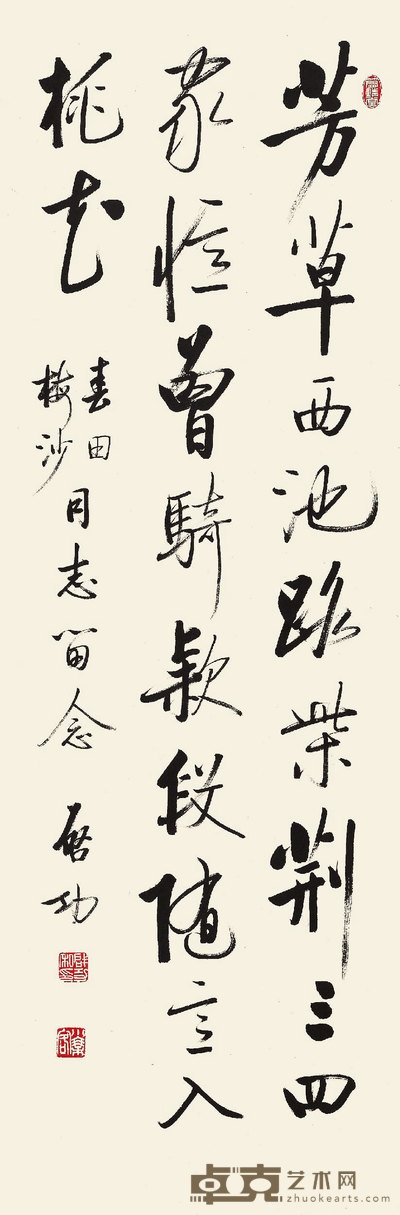 芳草西池路柴荆三四
家憶曾騎款段随意入
桃花
春田
樹沙
同志留念
启功
卓克艺术网
zhuokearts.com